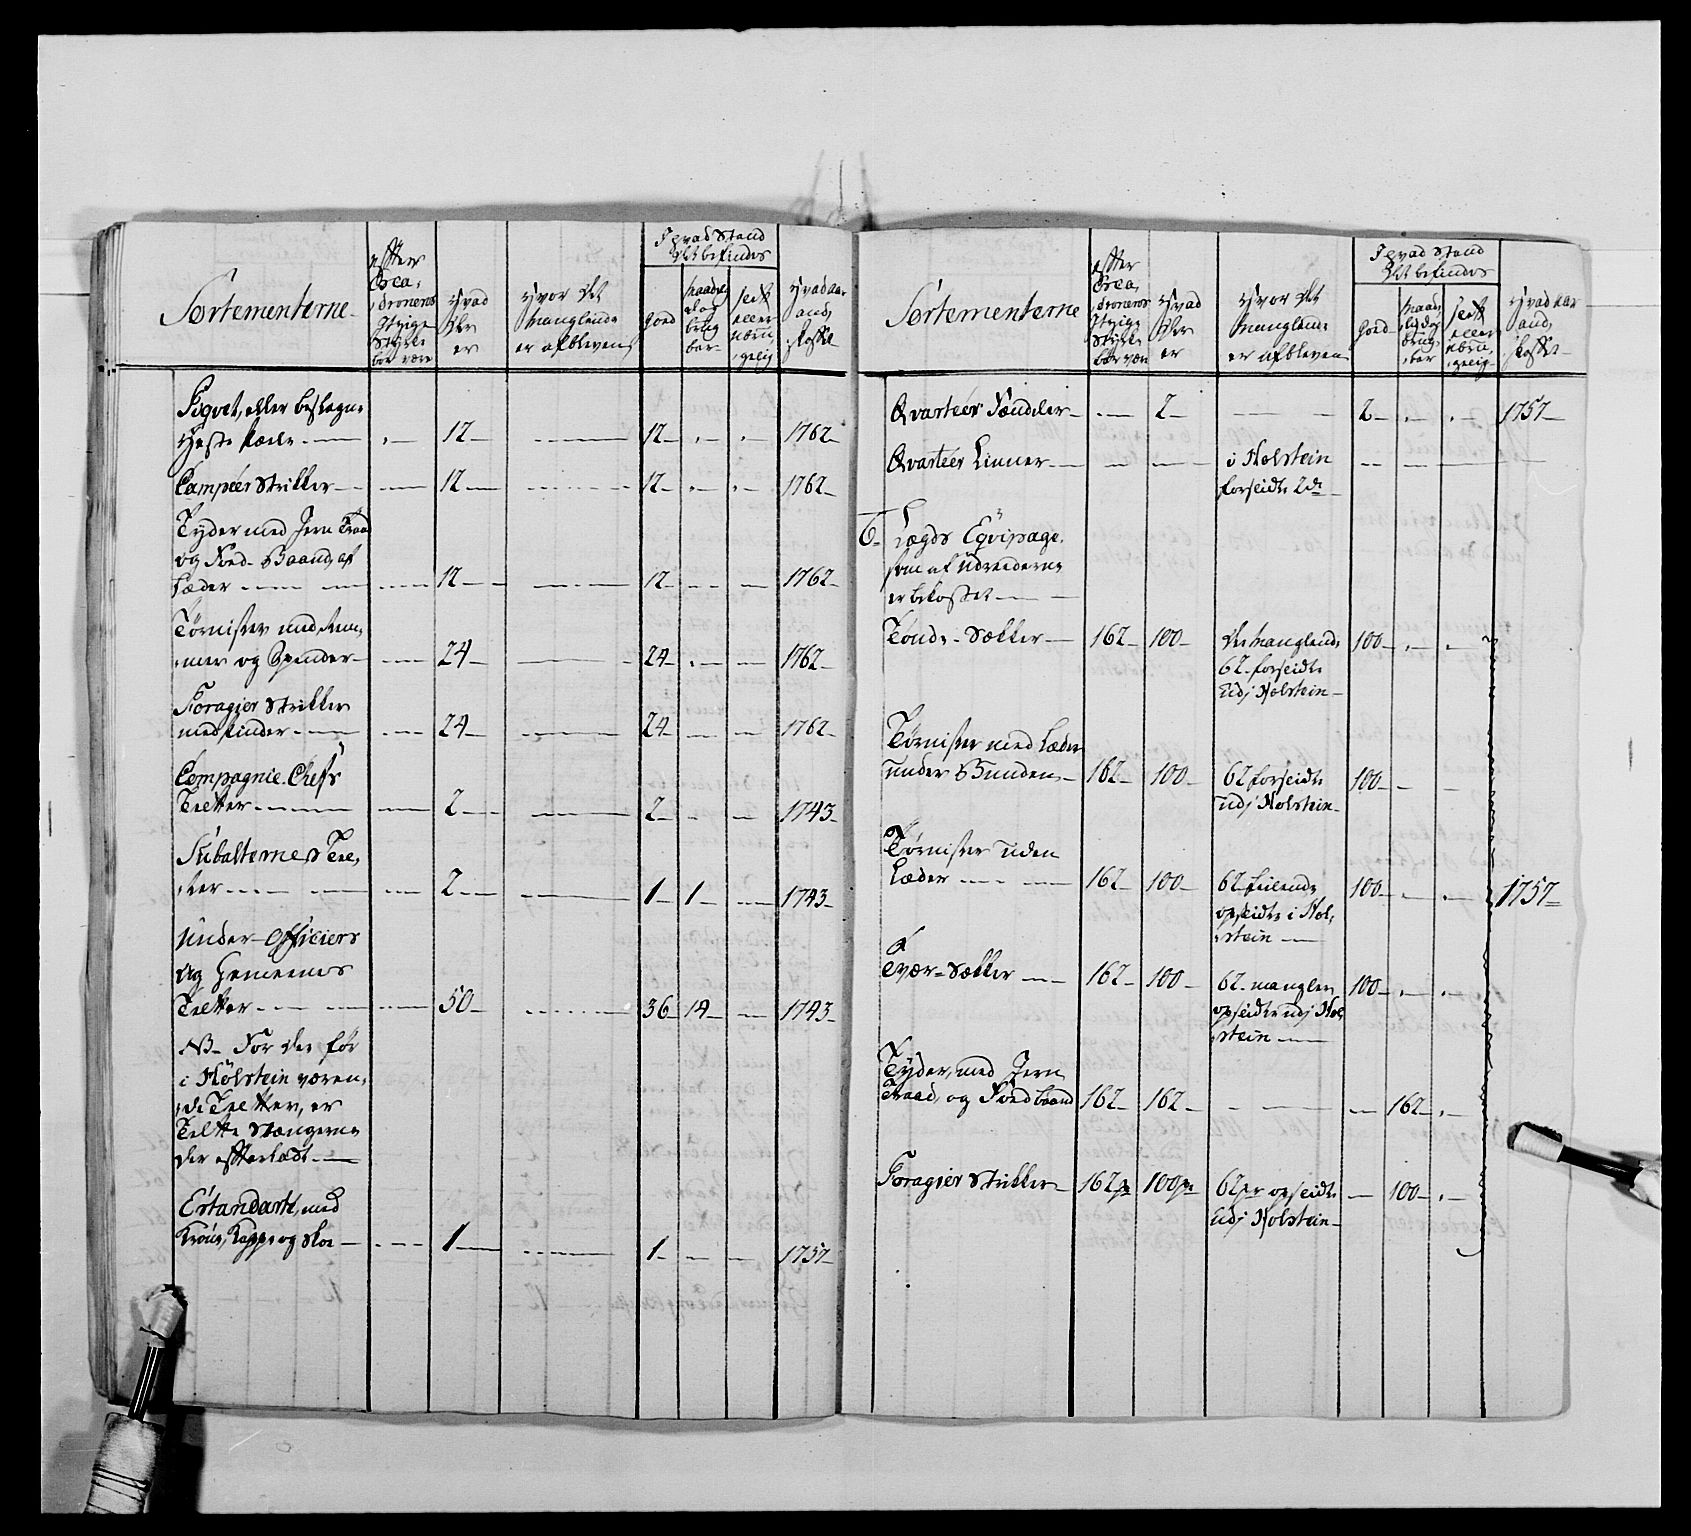 Sortementerne
efter
Esca,
droneres
Styrke
bør være
Hvad
der
er
Hvor det
manglende
er afbleven
I hvad Stand
det befindes
Goed
maadelig
dog
brug
bar
slett
eller
ubru,
gelig
Hvad aar
an,
skaffet
Piqvet, eller beslagne
Heste Pæle 12 12 1762
Campeer Strikker 12 12 1762
Tyder med Jern Traad
og Foed-Baand, af
Læder 12 12 1762
Tørnister med Rem,
mer og Spender 24 24 1762
Foragier Strikker
med Pinder 24 24 1762
Compagnie Chefs
Teltter 2 2 1743
Subalternes Tel,
ter 2 1 1 1743
Under-Officiers
og Gemeenes
Teltter 50 36 14 1743
NB. For de før
i Hölstein væren,
de Teltter, er
Telte Stængerne
der efterladt
Estandart, med
Krone, Kappe og Skoe 1 1 1757
Sortementerne
efter
Esca,
droneres
Styrke
bør være
Hvad
der
er
Hvor det
manglende
er afbleven
I hvad Stand
det befindes
Goed
maade,
lig dog
brug,
bar
slett
eller
ubru,
gelig
Hvad aar
an,
skaffet
Qvarteer 2 2 1757
Qvarteer Linner i Holstein
forseidt 2de
6. Lægds Eqvipage
som af Udrederne
er bekostet
Tönde-Sækker 162 100 De manglende 100
62 forseidt
udj Holstein
Tørnister med Læder
under Bunden 162 100 62 forseidt 100
udj Holstein
Tørnister uden
Læder 162 100 62 feilende 100 1757
opseidt i Hol,
stein
Tvær-Sækker 162 100 62 mangler 100
opseidt udj Hol,
stein
Tyder, med Jern
Traad, og Foedbaand 162 162 162
Foragier Strikker 162 pr 100 pr 62 pr opseidt 100
udj Holstein